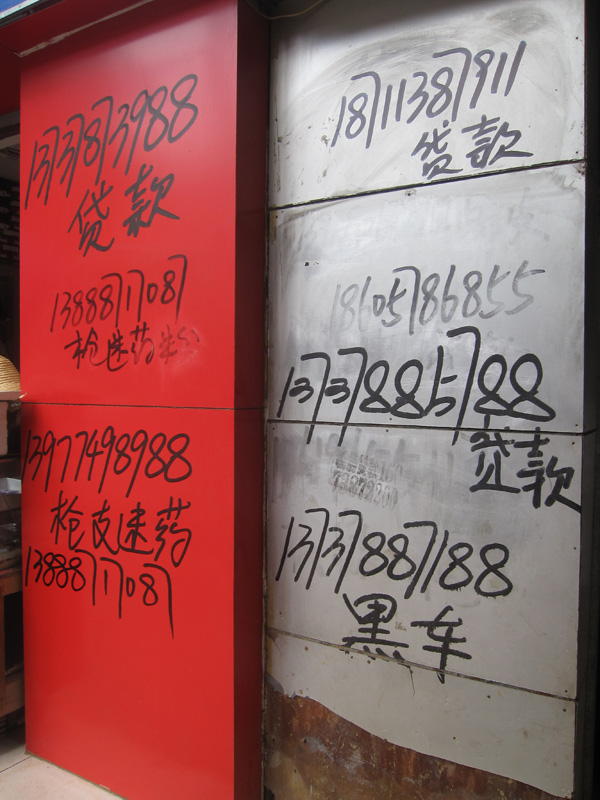 13737873988
贷款
13888717087
枪迷药粉
13977498988
枪支迷药
13888717087
18711387911
贷款
18605786855
13737885788
贷款
13737887188
黑车